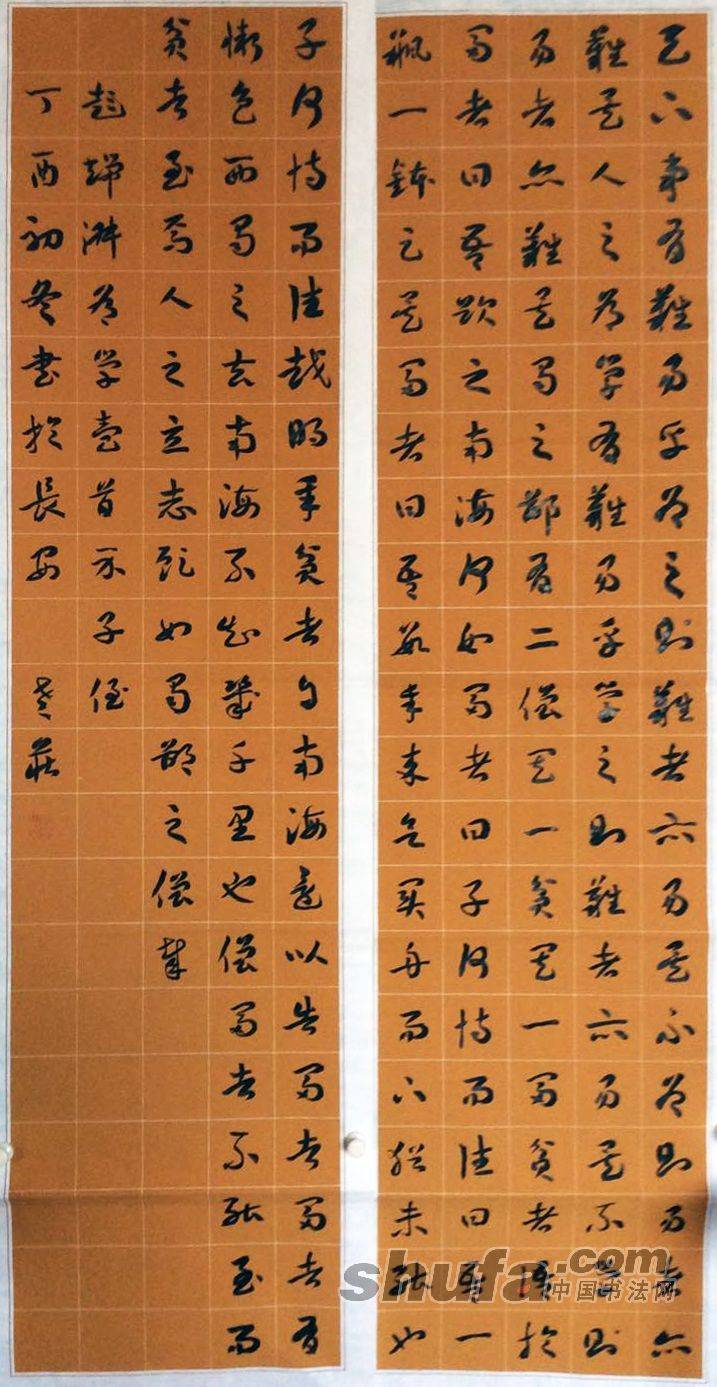 天下事有難易乎為之則難者亦易矣不為則易者亦
難矣人之為學有難易乎學之則難者亦易矣不學則
易者亦難矣蜀之鄙有二僧其一貧其一富貧者語於
富者曰吾欲之南海何如富者曰子何恃而往曰吾一
瓶一缽足矣富者曰吾數年來欲買舟而下猶未能也
子何恃而往越明年貧者自南海還以告富者富者有
慚色西蜀之去南海不知幾千里也僧富者不能至而
貧者至焉人之立志顧如蜀鄙之僧哉
彭端淑為学壹首示子侄
丁酉初冬書於長安 老莊
shufa.com
中国书法网